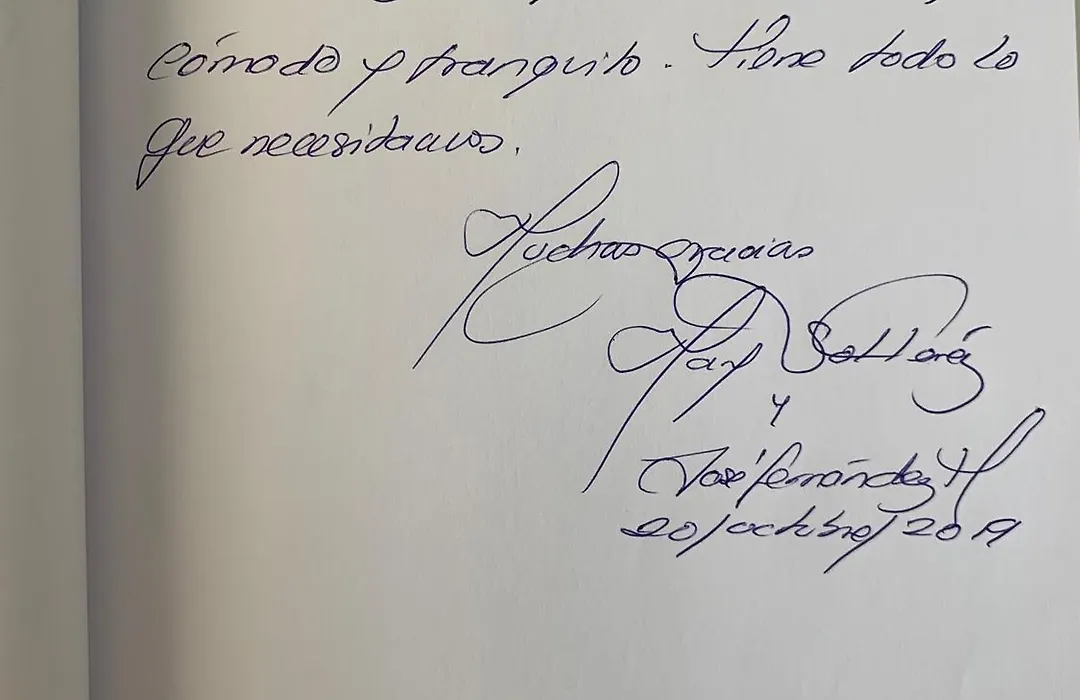 cómodo y tranquilo. Tiene todo lo
que necesitamos.
Muchas gracias
Mary
y
José Fernández M
20/octubre/2019